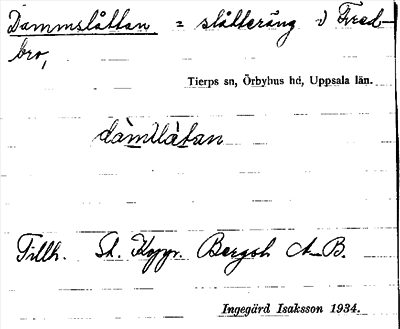 Dammslåttan = slåtteräng i Fred-
bro,
Tierps sn, Örbyhus hd, Uppsala län.
dàm̀slåtan
Tillh. St. Koppr. Bergsl. A.-B.
Ingegärd Isaksson 1934.